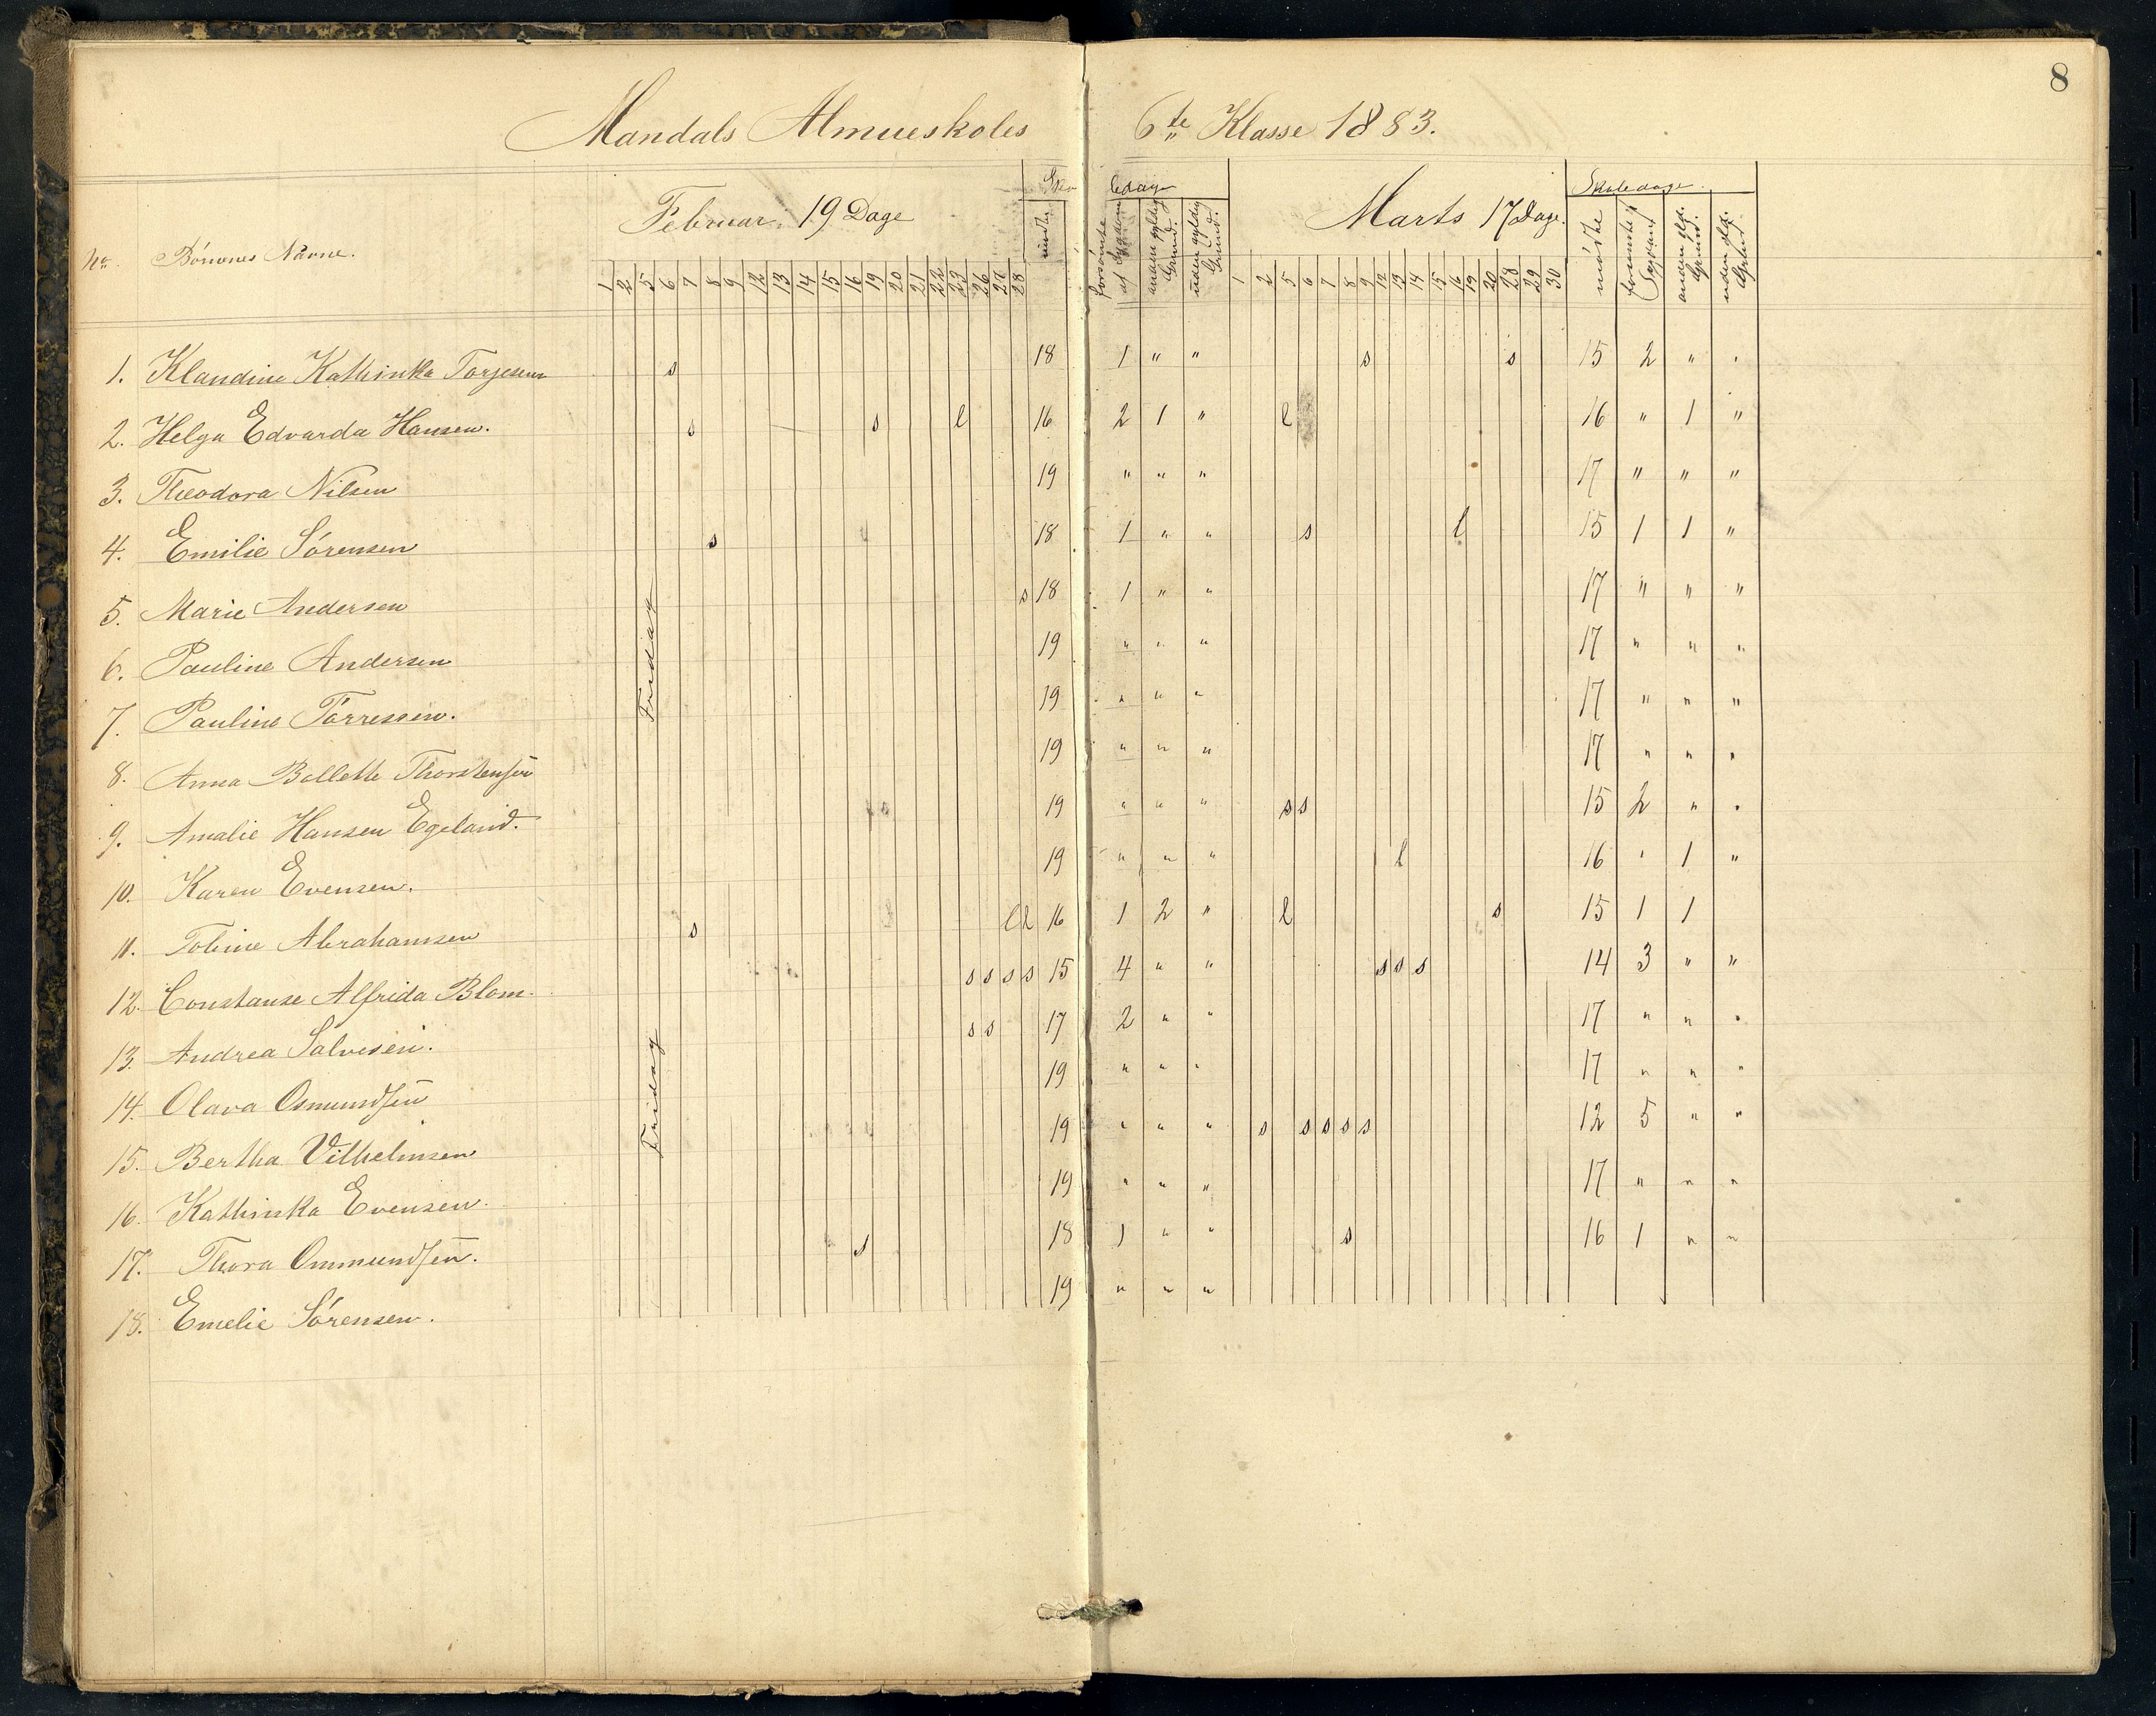 8
Mandals Almueskoles 6te Klasse 1883.
Skoledage Skoledage.
Februar. 19 Dage Marts 17 Dage.
No. Börnenes Navne. mødte forsömte af Sygdom anden gyldig Grund. uden gyldig Grund. mødte forsømte Sygdom anden gld. Grund. uden gld. Grund
1 2 5 6 7 8 9 12 13 14 15 16 19 20 21 22 23 26 27 28 1 2 5 6 7 8 9 12 13 14 15 16 19 20 28 29 30
1. Klaudine Kathinka Torjesen s 18 1 " " s s 15 2 " "
2. Helga Edvarda Hansen. s s l 16 2 1 " l 16 " 1 "
3. Theodora Nilsen 19 " " " 17 " " "
4. Emilie Sörensen s 18 1 " " s l 15 1 1 "
5. Marie Andersen s 18 1 " " 17 " " "
6. Pauline Andersen 19 " " " 17 " " "
7. Pauline Tarressen. 19 " " " 17 " " "
Fridag
8. Anna Bollette Thorstensen 19 " " " 17 " " "
9. Amalie Hansen Egeland. 19 " " " s s 15 2 " "
10. Karen Evensen. 19 " " " l 16 " 1 "
11. Tobine Abrahamsen s l l 16 1 2 " l s 15 1 1
12. Constanse Alfrida Blom. s s s s 15 4 " " s s s 14 3 " "
13. Andrea Salvesen. s s 17 2 " " 17 " " "
14. Olava Osmundsen 19 " " " 17 " " "
15. Bertha Vilhelmsen 19 " " " s s s s s 12 5 " "
Fridag
16. Kathinka Evensen. 19 " " " 17 " " "
17. Thora Ommundsen. s 18 1 " " s 16 1 " "
18. Emelie Sörensen. 19 " " "